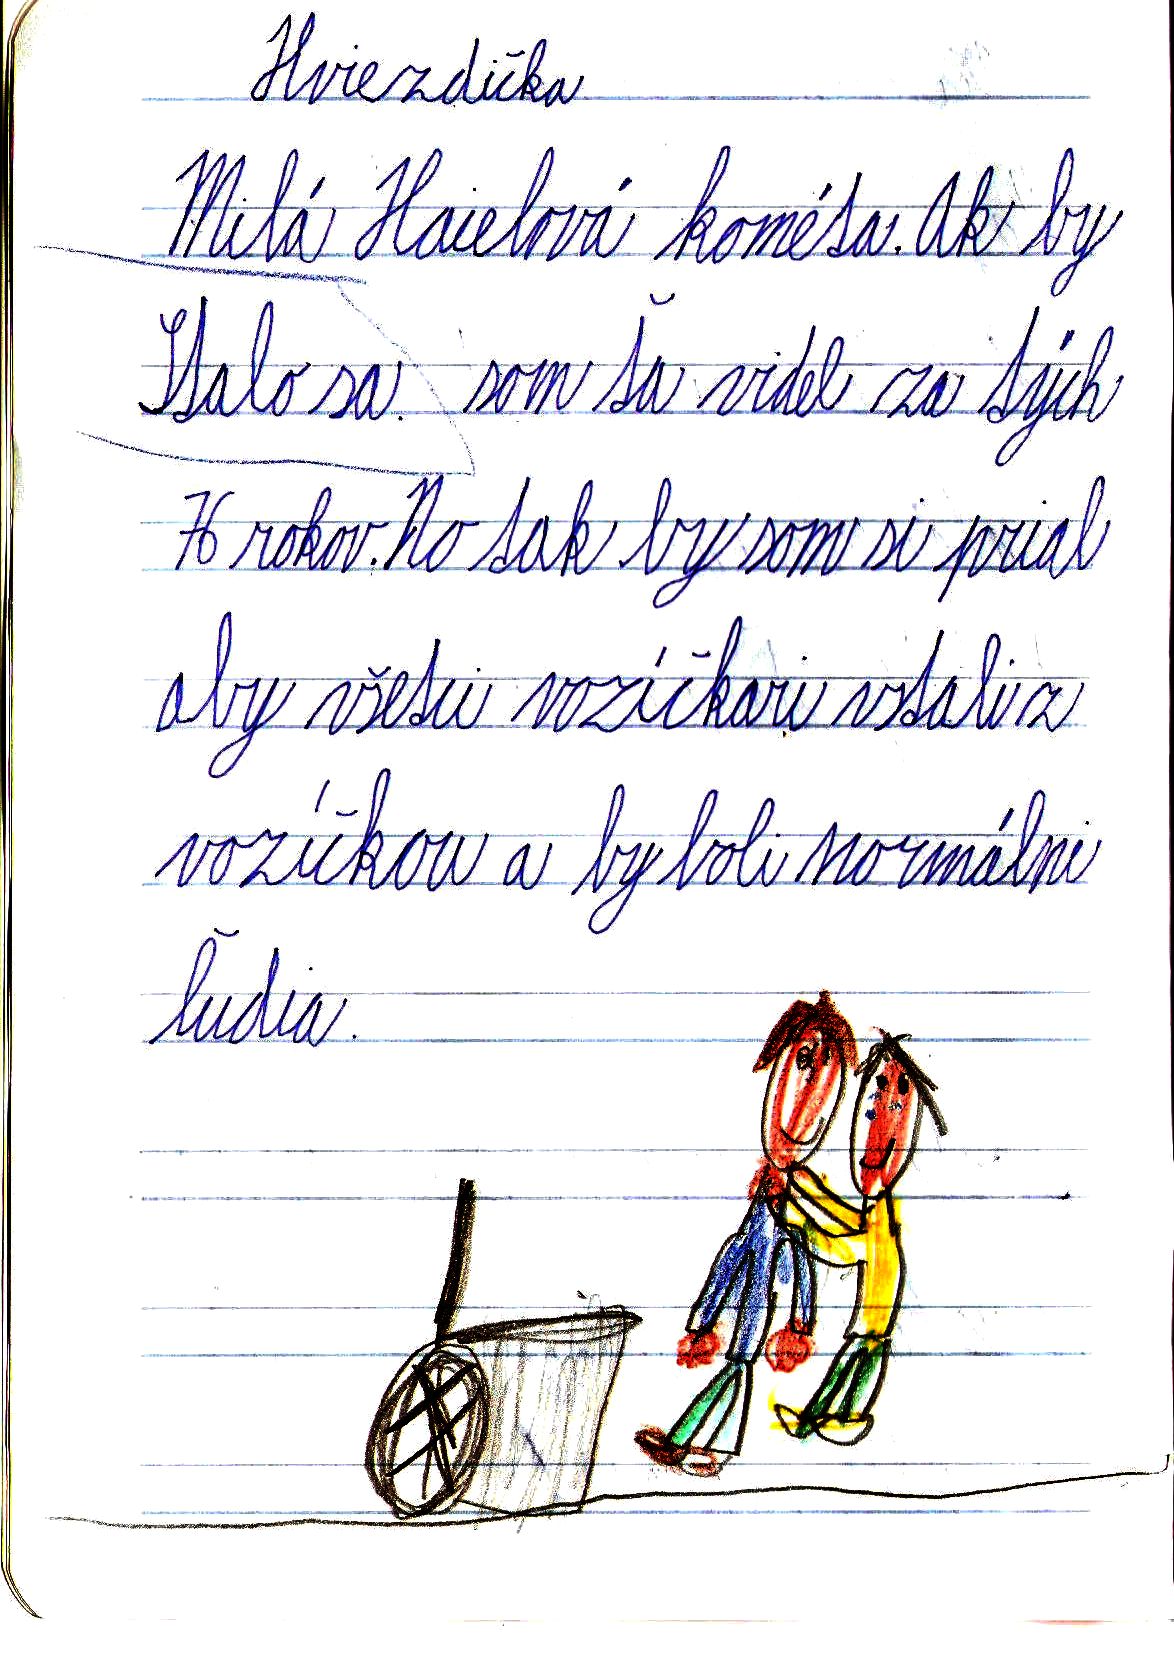 Hviezdička
Milá Haielová kométa. Ak by
Stalo sa. som ťa videl za tých
76 rokov. No tak by som si prial
aby všetci vozíčkari vstali z
vozíčkov a by boli normálni
ľudia.